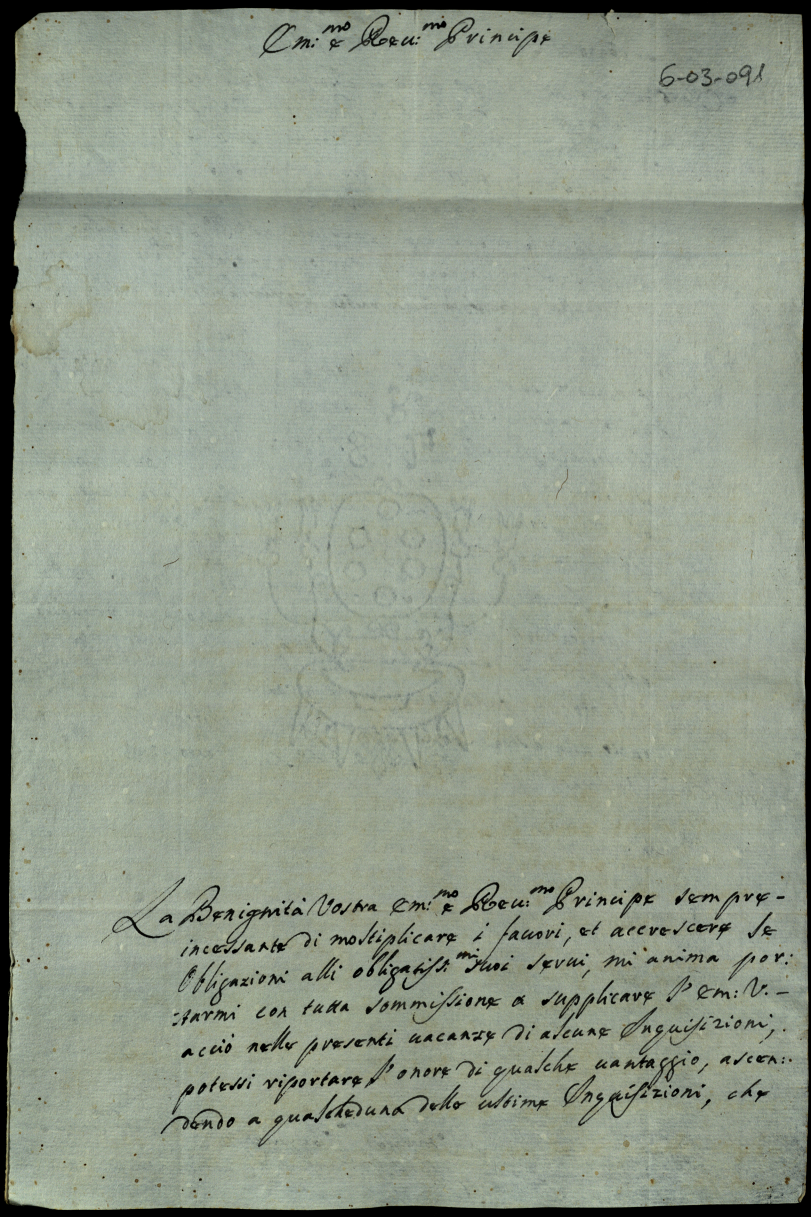 Em:mo e Reu:mo Principe
6-03-091
La Benignità Vostra Em:mo e Reu:mo Principe sempre-
incessante di moltiplicare i fauori, et accrescere le
Obligazioni alli obligatiss:mi suoi serui, mi anima por:
:tarmi con tutta sommissione a supplicare l'Em: V.-
acciò nelle presenti uacanze di alcune Inquisizioni,
potessi riportare l'onore di qualche uantaggio, ascen:
dendo a qualcheduna delle ultime Inquisizioni, che